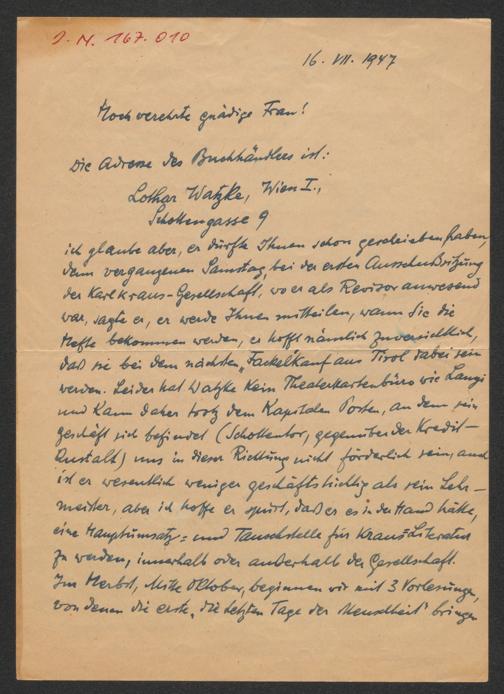 J.N. 167.010
16. VII. 1947
Hochverehrte gnädige Frau!
Die Adresse des Buchhändlers ist:
Lothar Watzke, Wien I.,
Schottengasse 9
ich glaube aber, er dürfte Ihnen schon geschrieben haben,
denn vergangenen Samstag, bei der ersten Ausschußsitzung
der Karl Kraus-Gesellschaft, wo er als Revisor anwesend
war, sagte er, er werde Ihnen mitteilen, wann Sie die
Hefte bekommen werden, er hofft nämlich zuversichtlich,
daß sie bei dem nächsten „Fackel“kauf aus Tirol dabei sein
werden. Leider hat Watzke kein Theaterkartenbüro wie Lanyi
und kann daher trotz dem kapitalen Posten, an dem sein
Geschäft sich befindet (Schottentor, gegenüber der Kredit-
Anstalt) uns in dieser Richtung nicht förderlich sein, auch
ist er wesentlich weniger geschäftstüchtig als sein Lehr-
meister, aber ich hoffe er spürt, daß er es in der Hand hätte,
eine Hauptumsatz= und Tauschstelle für Kraus=Literatur
zu werden, innerhalb oder außerhalb der Gesellschaft.
Im Herbst, Mitte Oktober, beginnen wir mit 3 Vorlesungen,
von denen die erste „die letzten Tage der Menschheit“ bringen